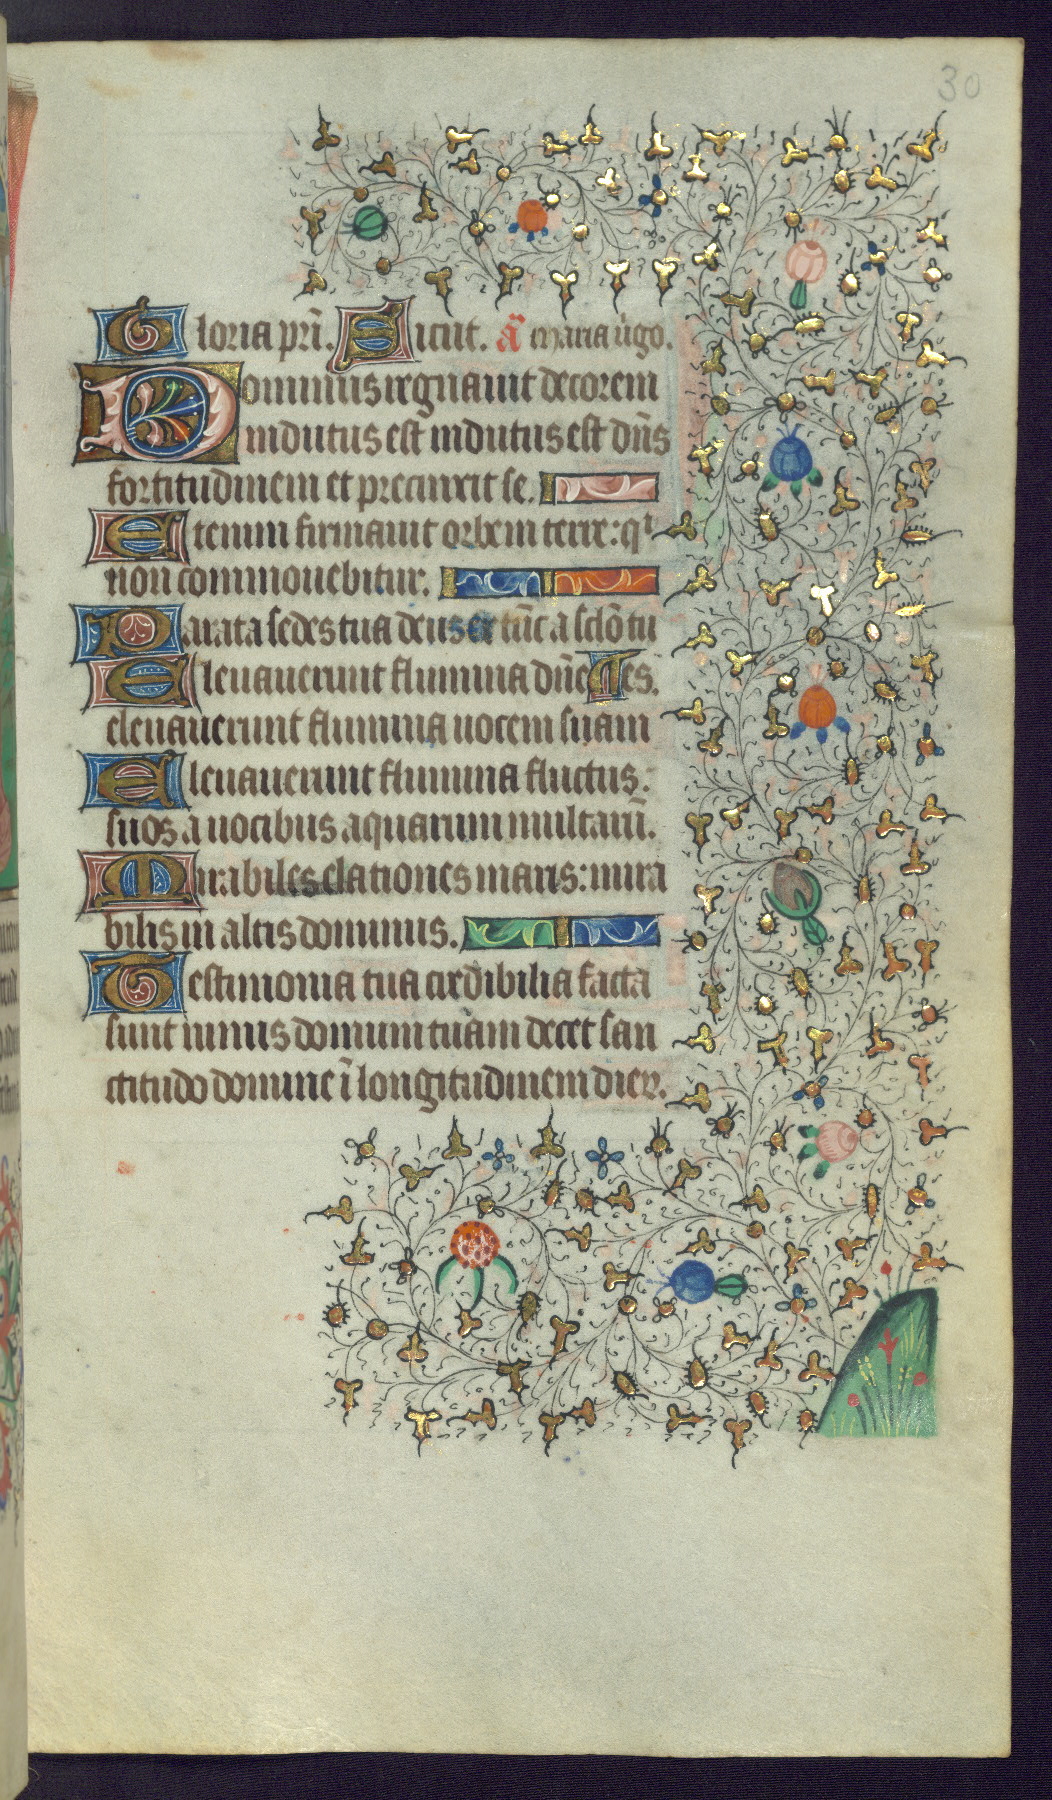 30
Gloria pr̃i. Sicut. añ maria ũgo.
Dominus regnauit decorem
indutus est indutus est dñs
fortitudinem et precinxit se.
Etenim firmauit orbem terre: qⁱ
non commouebitur.
Parata sedes tua deus ex tũc a sclõ tu
Eleuauerunt flumina dñe Tes.
eleuauerunt flumina uocem suam
Eleuauerunt flumina fluctus:
suos a uocibus aquarum multarũ.
Mirabiles elationes maris: mira
bilis in altis dominus.
Testimonia tua credibilia facta
sunt nimis domum tuam decet san
ctitudo domine ĩ longitudinem dieꝝ.